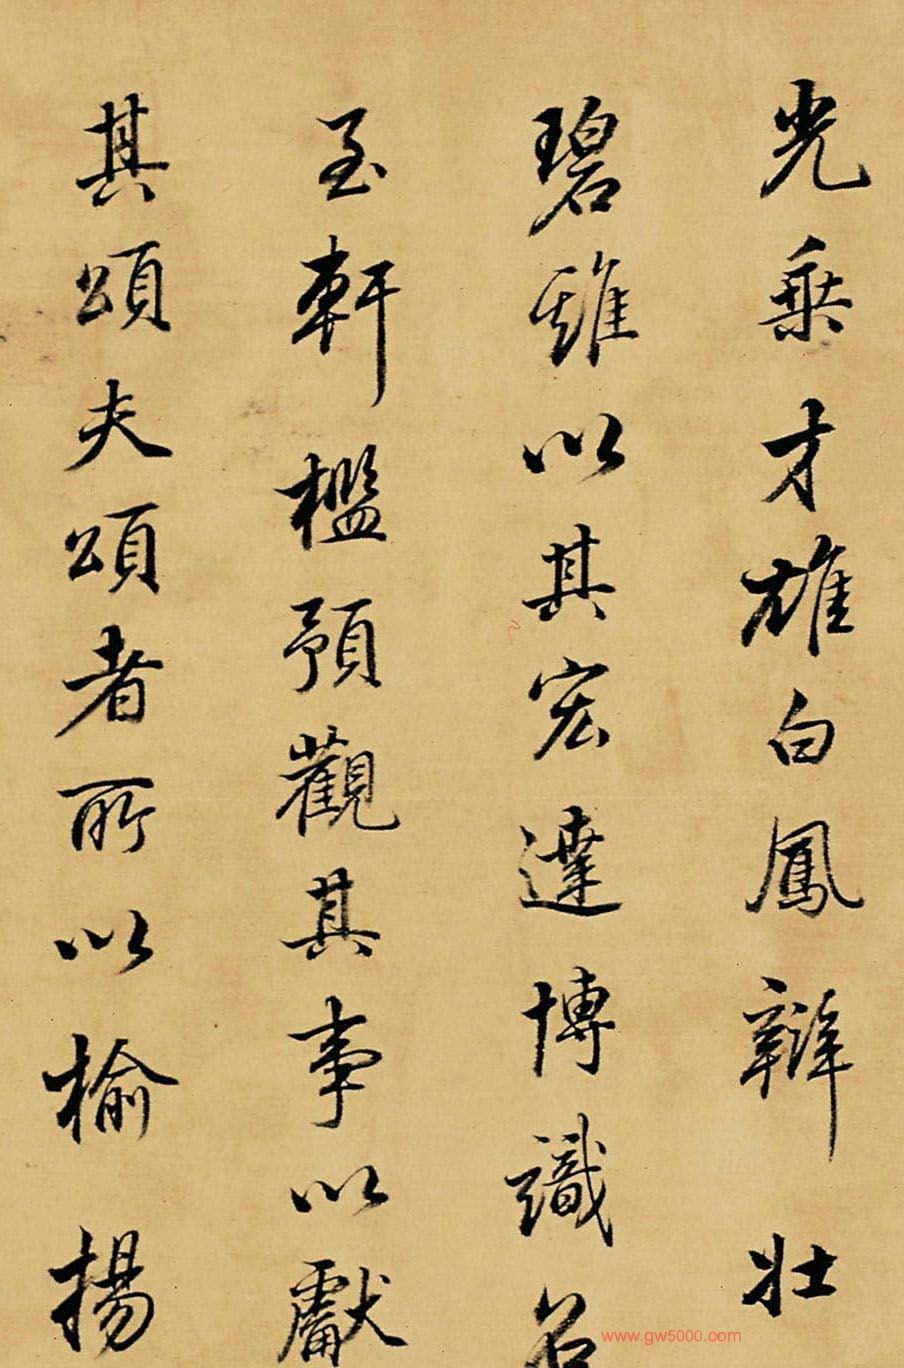 光乗才雄白鳳辯壯
碧雞以其宏達博識召
至軒檻預觀其事以獻
其頌夫頌者所以榆揚
www.gw5000.com